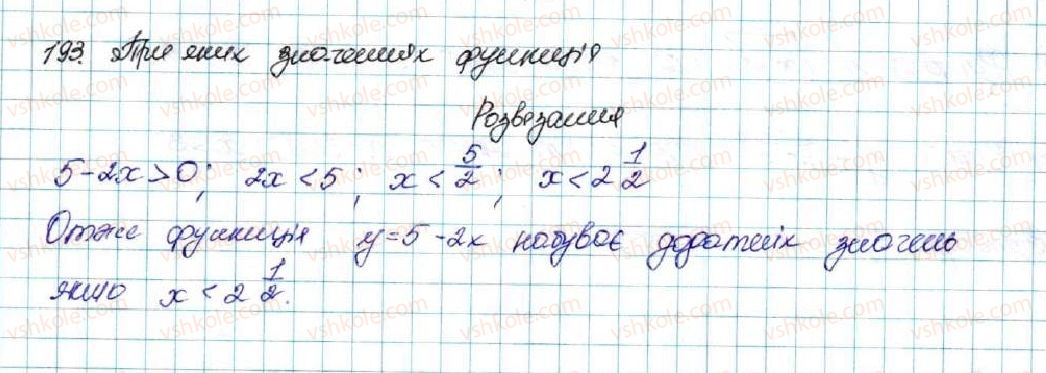 193. При яких значеннях функція
Розвезання
5-2x>0; 2x<5; x<5/2; x<2 1/2
Отже функція y=5-2x набуває додатніх значень
якшо x<2 1/2.